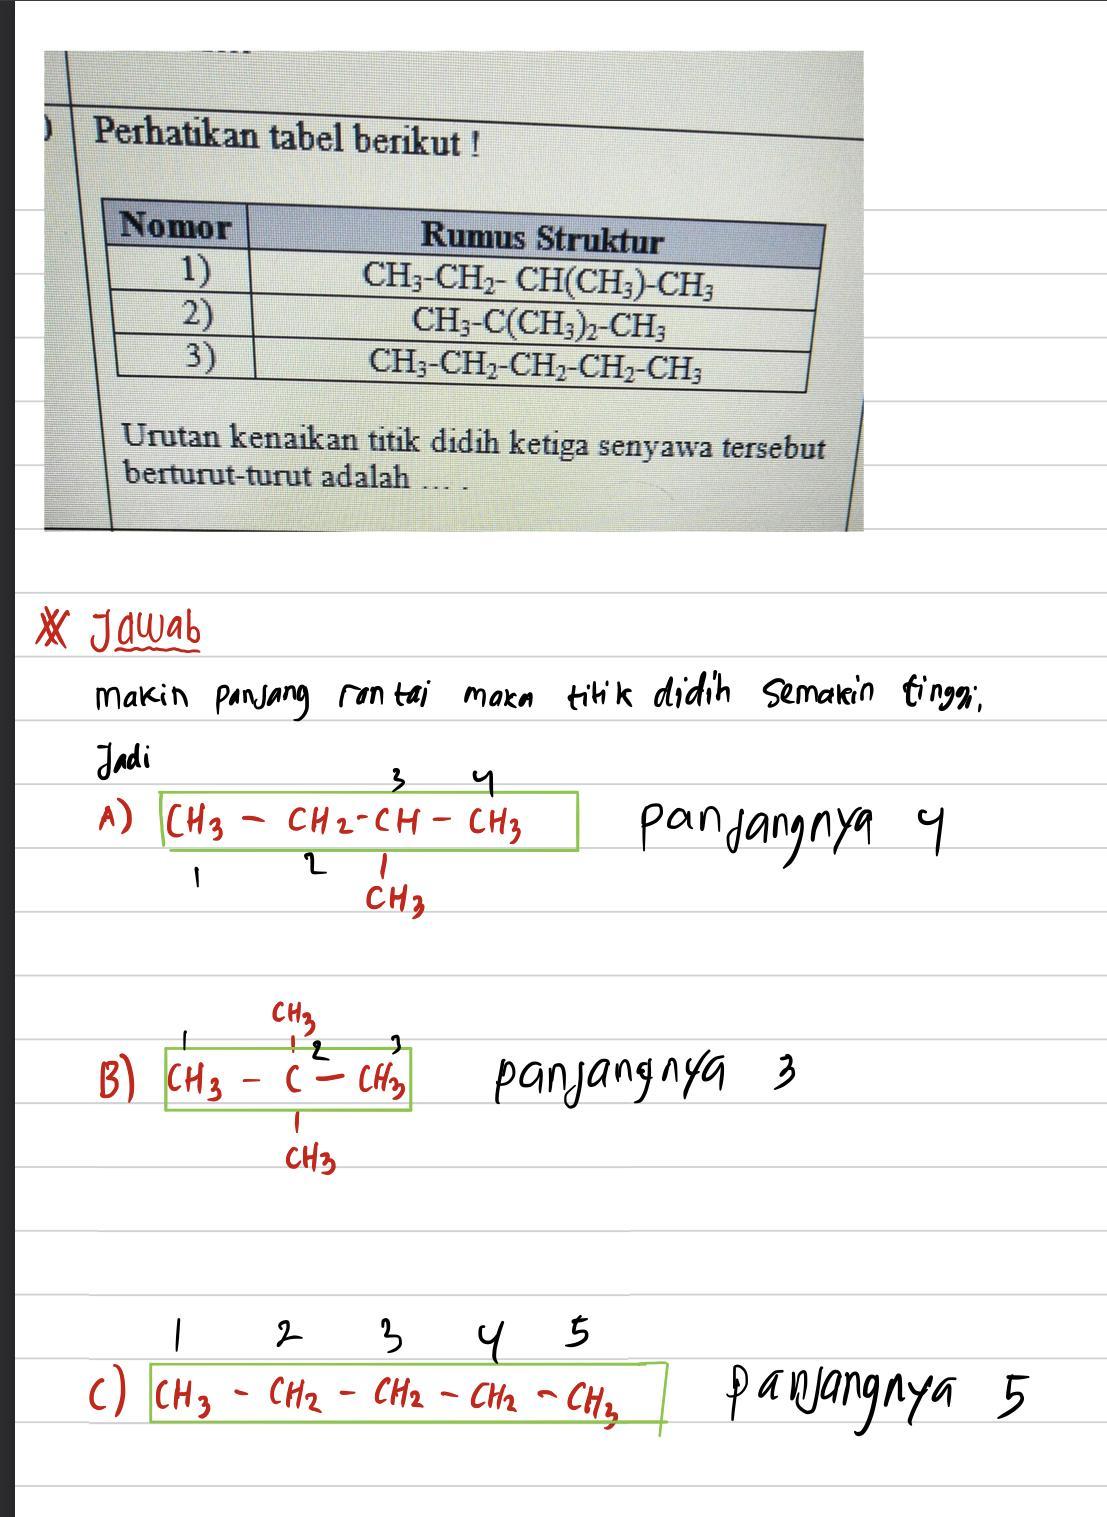 Perhatikan tabel berikut !
Nomor Rumus Struktur
1) CH₃-CH₂- CH(CH₃)-CH₃
2) CH₃-C(CH₃)₂-CH₃
3) CH₃-CH₂-CH₂-CH₂-CH₃
Urutan kenaikan titik didih ketiga senyawa tersebut
berturut-turut adalah ... .
Jawab
makin panjang rantai maka titik didih semakin tinggi,
Jadi
3 4
A) CH₃ - CH₂-CH - CH₃ panjangnya 4
1 2
CH₃
CH₃
1 2 3
B) CH₃ - C - CH₃ panjangnya 3
CH₃
1 2 3 4 5
C) CH₃ - CH₂ - CH₂ - CH₂ - CH₃ panjangnya 5